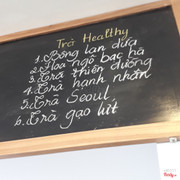 Trà Healthy
1. Bông lan dừa
2. Hoa ngô bạc hà
3. Trà thiên đường
4. Trà hạnh nhân
5. Trà Seoul
6. Trà gạo lứt